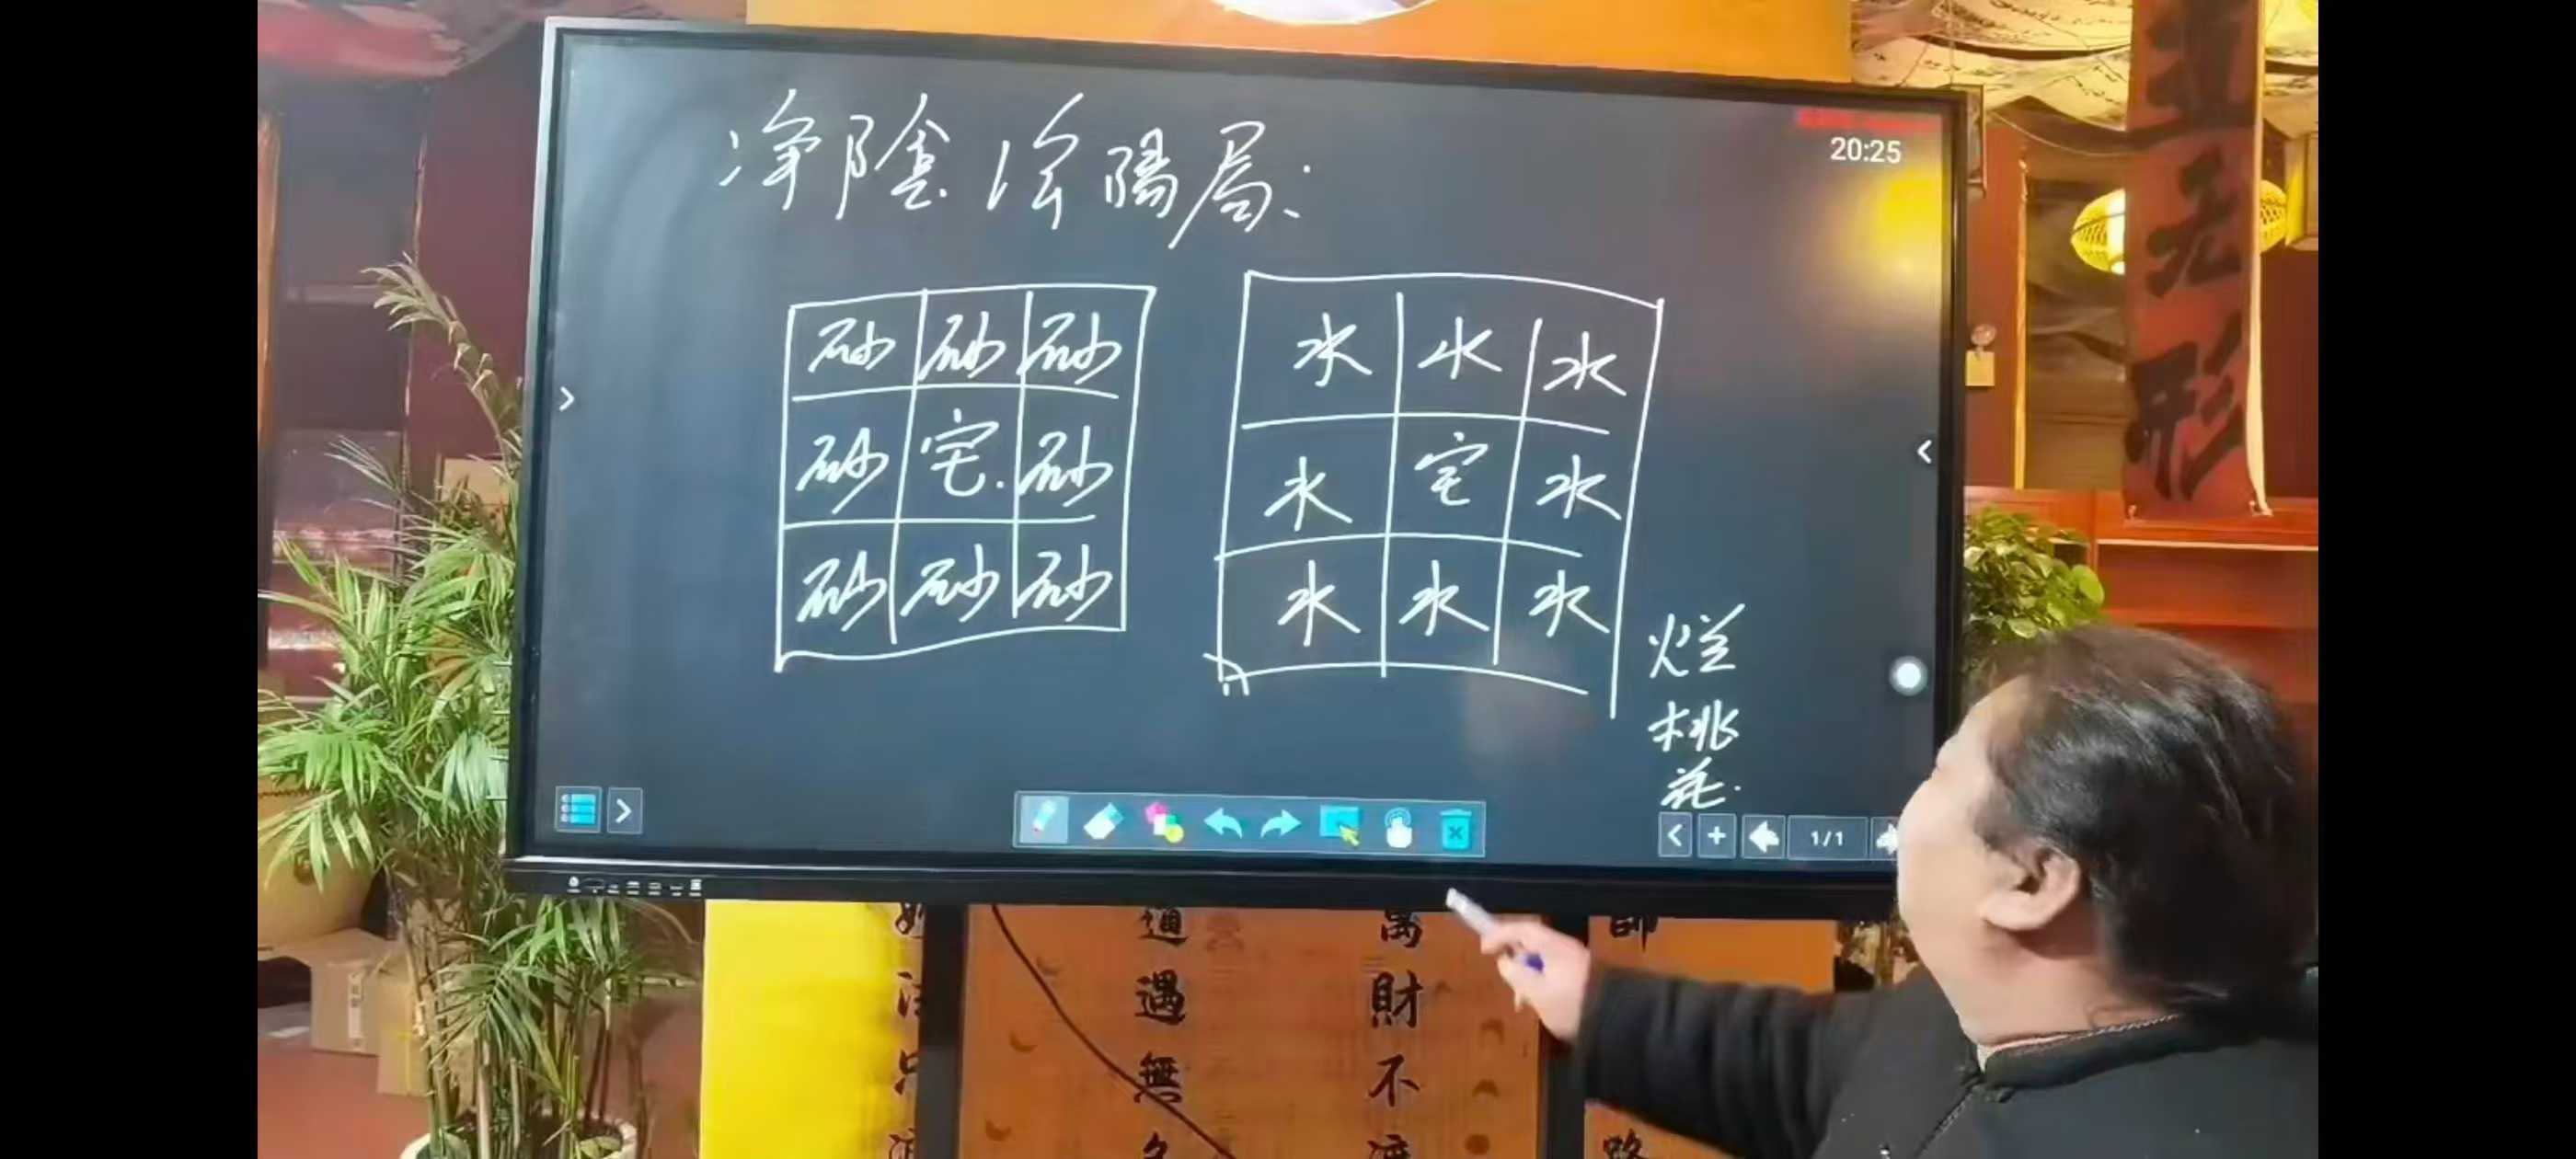 净陰净陽局:
20:25
砂 砂 砂
砂 宅. 砂
砂 砂 砂
水 水 水
水 宅 水
水 水 水
烂
桃
花.
1/1
无
形
道
遇
無
萬
財
不
渡
師
路